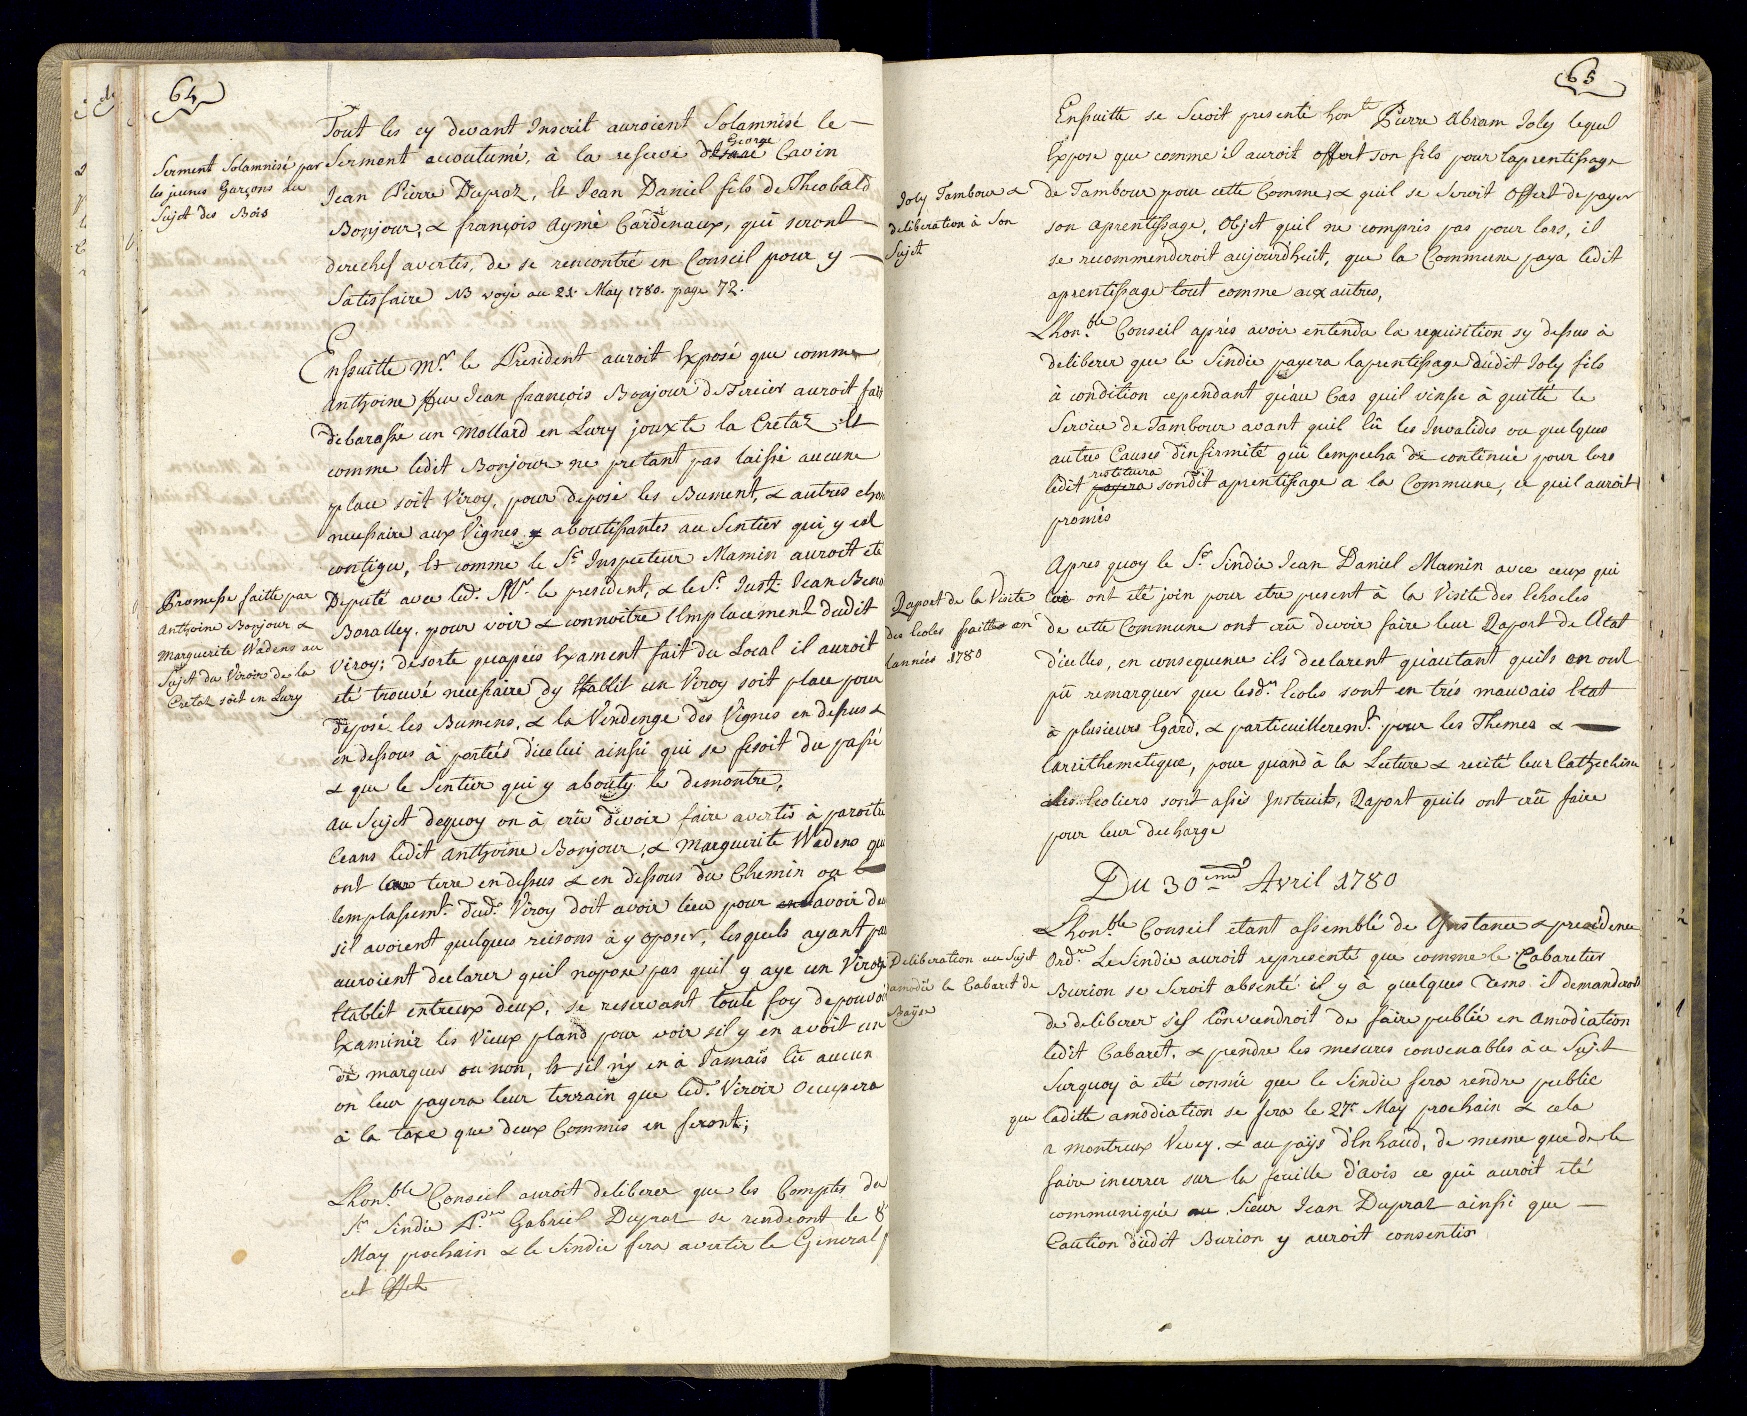 64
Serment Solamnisé par
les jeunes Garçons au
Sujet des Bois
Tout les cy devant Inscrit auroient Solamnisé le —
Serment accoutumé, à la reserve d'Isaac George Cavin
Jean Pierre Dupraz, & Jean Daniel fils de Theobald
Bonjour, & françois Aymé Cardinaux, qui seront —
derechef avertis, de se rencontré en Conseil pour y —
Satisfaire NB voyé au 21. May 1780. page 72.
Ensuitte Mr. le President auroit Exposé que comme
Anthoine feu Jean françois Bonjour d Tercier auroit fait
débarasse un Mollard en Lury jouxte la Cretaz Et
comme ledit Bonjour ne pretant pas laissé aucune
place soit Viroy, pour déposé les Bument, & autres chose
necessaire aux Vignes & aboutissantes au Sentier qui y est
contigu, Et comme le Sr. Inspecteur Mamin auroit eté
Promesse faitte par
Anthoine Bonjour &
Marguerite Wadens au
Sujet du Viroir de la
Cretaz soit en Lury
Deputé avec led. Mr. le president, & le Sr. Just. Jean Bend
Boralley. pour voir & connoitre l'Emplacement dudit
Viroy; désorte quapéis Exament fait du Local il auroit
eté trouvé necessaire dy Etablit un Viroy soit place pour
déposé les Bumens, & la Vendenge des Vignes en dessus &
en dessous à portées d'icelui ainssi qui se fesoit du passé
& que le Sentier qui y abouty le demontre,
au Sujet dequoy on à crû devoir faire avertir à paroitre
Ceans ledit Anthoine Bonjour, & Marguerite Wadens qui
ont leur terre en dessus & en dessous du Chemin ou
lemplassemt. dud. Viroy doit avoir lieu pour savoir deu
sil avoient quelques reisons à y oposer, lesquels ayant par
auroient declarer quil nopose pas quil y aye un Viroye
Etablit entreux deux, se reservant toute foy de pouvoir
Examiner les Vieux pland pour voir sil y en avoit un
de marquer ou non, Et sil n'y en à Jamais Eû aucun
on leur payera leur terrain que led. Viroir occupera
à la taxe que deux Commis en feront;
Lhonble. Conseil auroit deliberer que les Comptes du
Sr Sindic Gabriel Dupraz se rendront le 8e
May prochain & le Sindic fera avertir le General p
cet Effet
65
Ensuitte se Seroit presenté hont. Pierre Abram Joly lequel
Expose que comme il auroit offert son fils pour laprentissage
Joly Tambour &
deliberation à Son
Sujet
de Tambour pour cette Comme, & quil se Seroit offert de payer
son aprentissage, Objet quil ne compris pas pour lors, il
se recommenderoit aujourdhuit, que la Commune paya ledit
aprentissage tout comme aux autres,
Lhonble. Conseil après avoir entendu la requisition sy dessus à
deliberer que le Sindic payera laprentissage dudit Joly fils
à condition cependant qu'au Cas quil vinse à quitté le
Service de Tambour avant quil lû les Invalides ou quelques
autres Causes d'infirmité qui lempecha de continué pour lors
ledit payera restituera sondit aprentissage a la Commune, ce quil auroit
promis
Apres quoy le Sr. Sindic Jean Daniel Mamin avec ceux qui
Raport de la Visite
des Ecoles faittes en
lannées 1780
lui ont été join pour etre present à la Visite des Echocles
de cette Commune ont crû devoir faire leur Raport de l'Etat
d'icelles, en consequence ils declarent quautant quils en ont
pû remarquer que lesd. Ecoles sont en trés mauvais Etat
à plusieurs Egard, & particuilleremt. pour les Themes & —
larrithemetique, pour quand à la Lecture & recité leur Cathechisme
les Ecoliers sont assés Instruits, Raport quils ont crû faire
pour leur decharge
Du 30eme Avril 1780
Lhonble. Conseil etant assemblé de Instance & presidence
Deliberation au Sujet
amodié le Cabaret de
Bayse
Ordre. Le Sindic auroit representé que comme le Cabaretier
Burion se Seroit absenté il y à quelques Tems il demanderoit
de deliberer sil Conviendroit de faire publié en Amodiation
ledit Cabaret, & prendre les mesures convenables à ce Sujet
Surquoy à eté connû que le Sindic fera rendre public
que laditte amodiation se fera le 27e May prochain & cela
a montreux Vevey, & au paÿs d'En haud, de meme que de le
faire incerrer sur la feuille d'avis ce qui auroit eté
communiqué au Sieur Jean Dupraz ainssi que —
Caution dudit Burion y auroit consentis